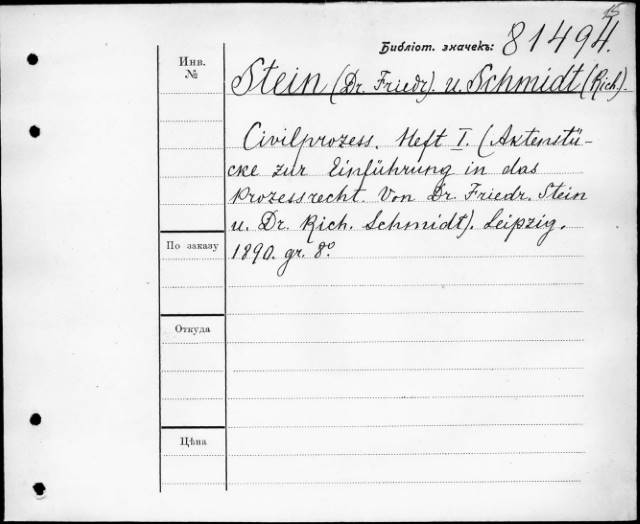 15
Библіот. значекъ: 81494.
Инв.
№
Stein (Dr. Friedr). u. Schmidt (Rich).
Civilprozess. Heft I. (Aktenstü-
cke zur Einführung in das
Prozessrecht. Von Dr. Friedr. Stein
u. Dr. Rich. Schmidt). Leipzig.
1890. gr. 8º.
По заказу
Откуда
Цѣна